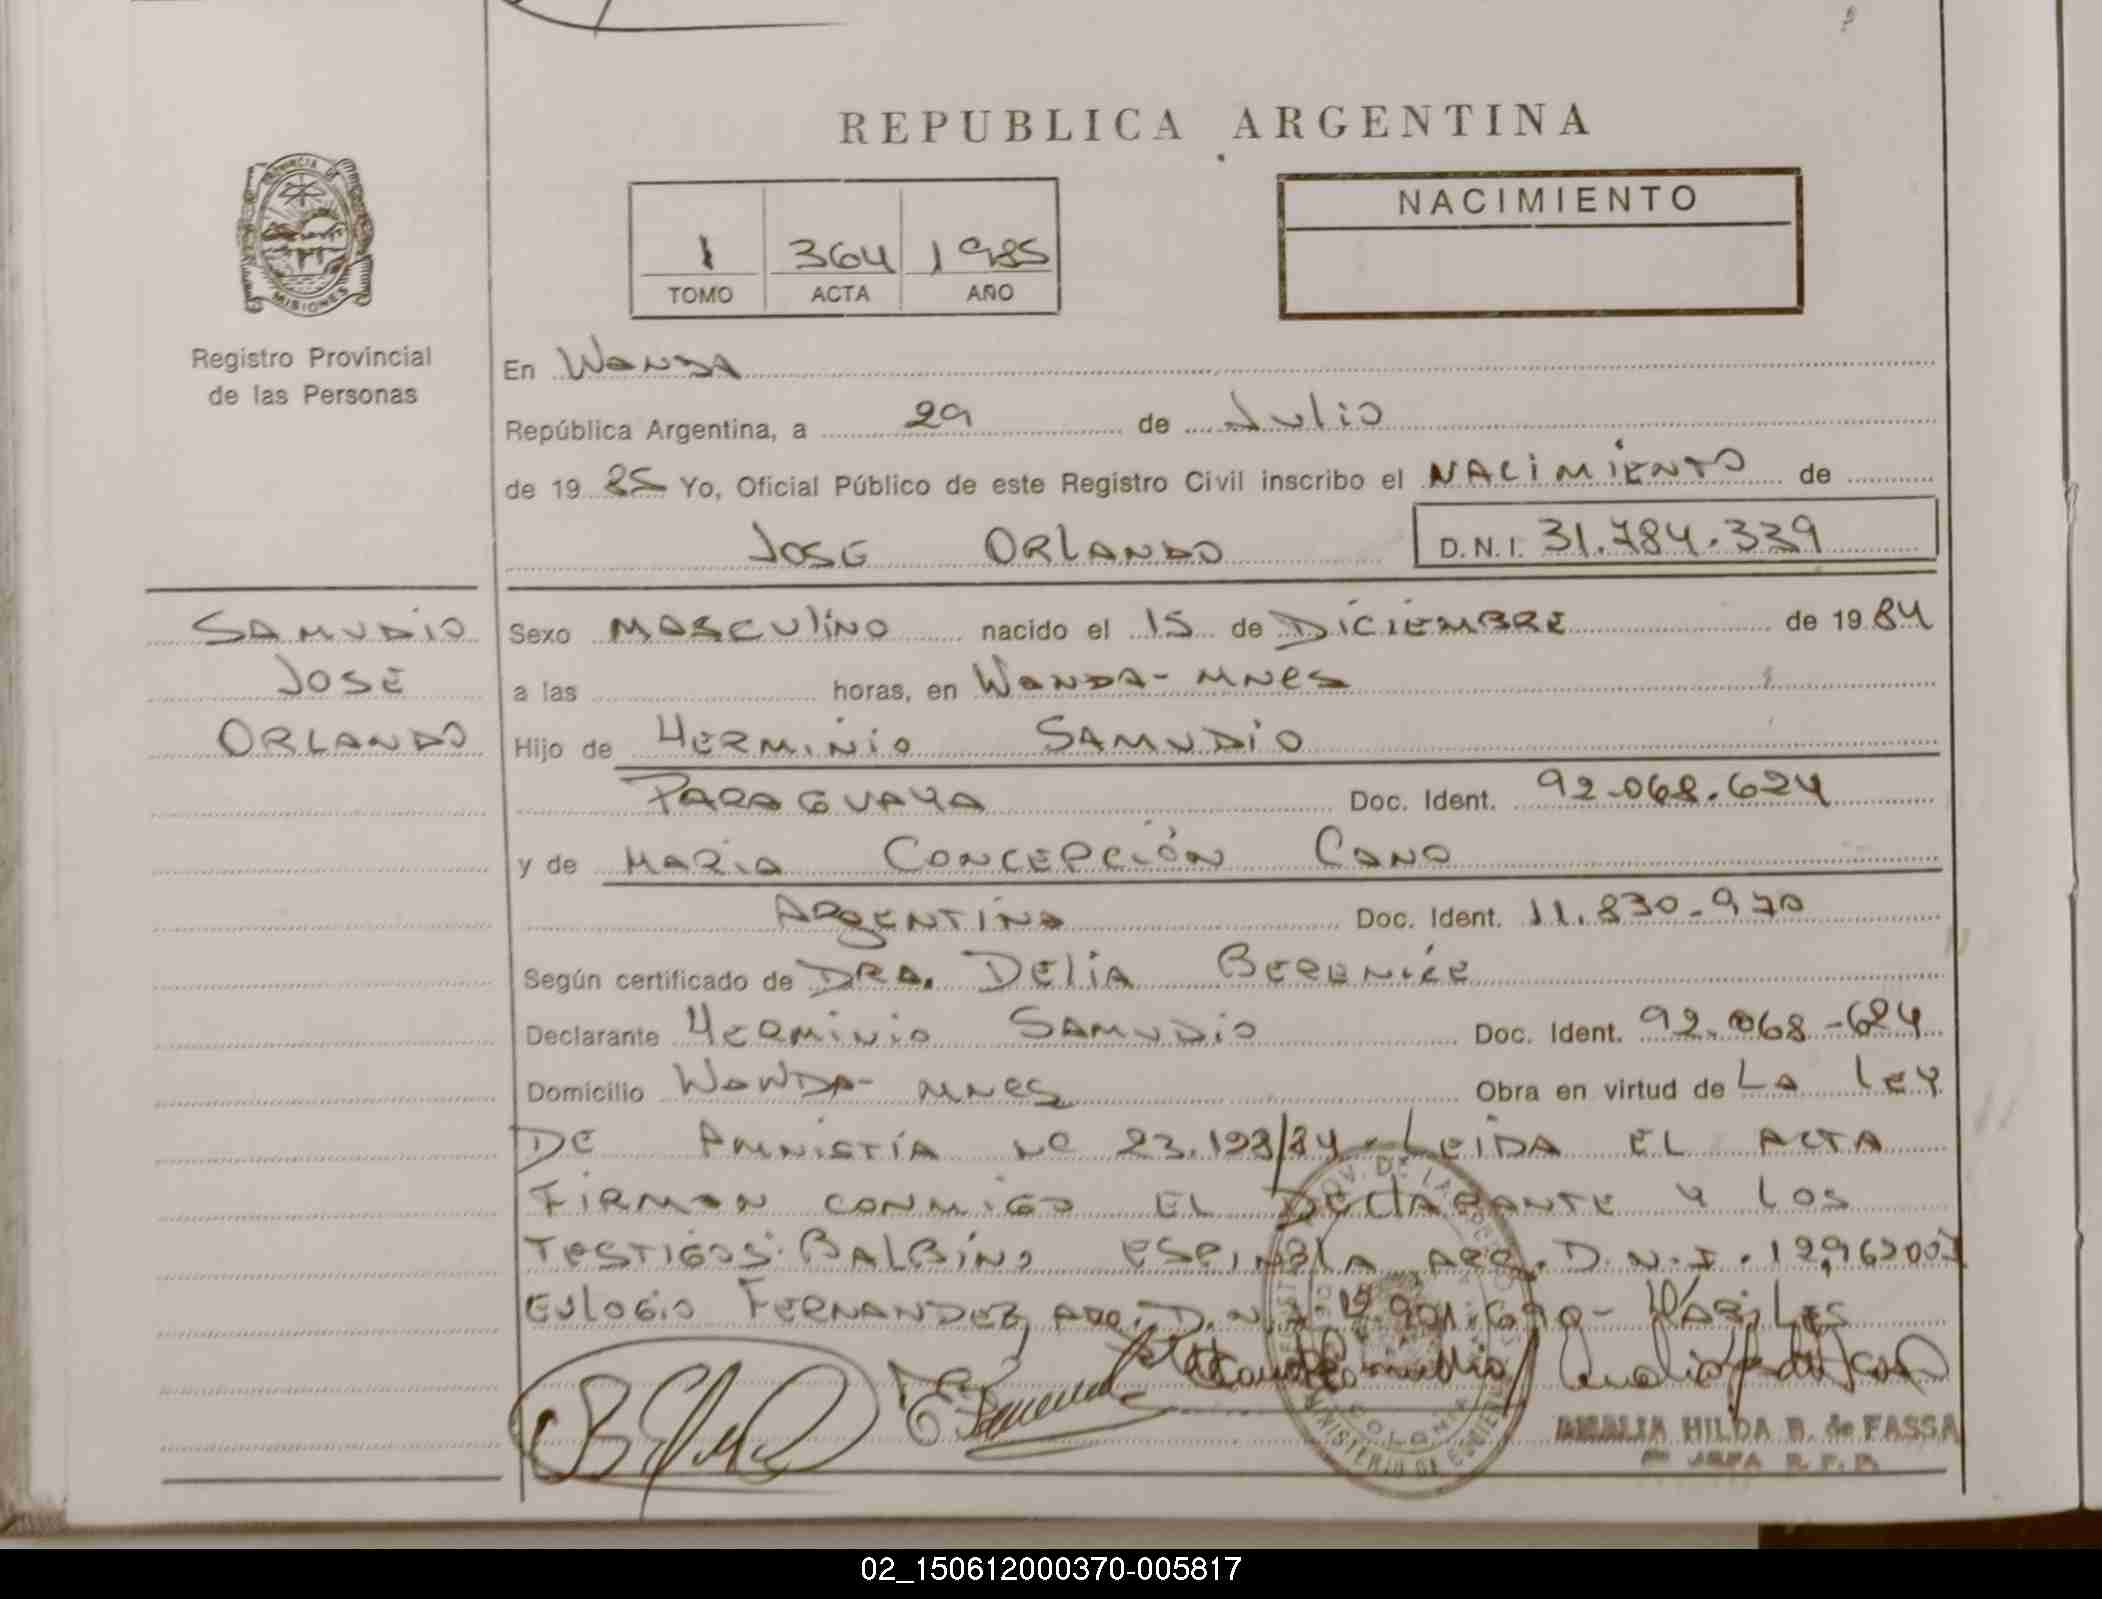 REPUBLICA ARGENTINA
PROVINCIA DE MISIONES
Registro Provincial
de las Personas
1 364 1985
TOMO ACTA AÑO
NACIMIENTO
En WANDA
República Argentina, a 29 de Julio
de 19 85 Yo, Oficial Público de este Registro Civil inscribo el NACIMIENTO de
JOSE ORLANDO D.N.I. 31.784.339
SAMUDIO
JOSE
ORLANDO
Sexo MASCULINO nacido el 15 de DICIEMBRE de 19 84
a las horas, en WANDA - MNES
Hijo de HERMINIO SAMUDIO
PARAGUAYA Doc. Ident. 92.068.624
y de MARIA CONCEPCIÓN CANO
ARGENTINA Doc. Ident. 11.830.970
Según certificado de DRA. DELIA BERENICE
Declarante HERMINIO SAMUDIO Doc. Ident. 92.068-624
Domicilio WANDA - MNES Obra en virtud de LA LEY
DE AMNISTÍA Nº 23.193/84 - LEIDA EL ACTA
FIRMAN CONMIGO EL DECLARANTE Y LOS
TESTIGOS: BALBINO ESPINOLA ARG. D.N.I.
EULOGIO FERNANDEZ ARG. D.N.I.
AMALIA HILDA B. de FASSA
JEFA R.P.P.
02_150612000370-005817